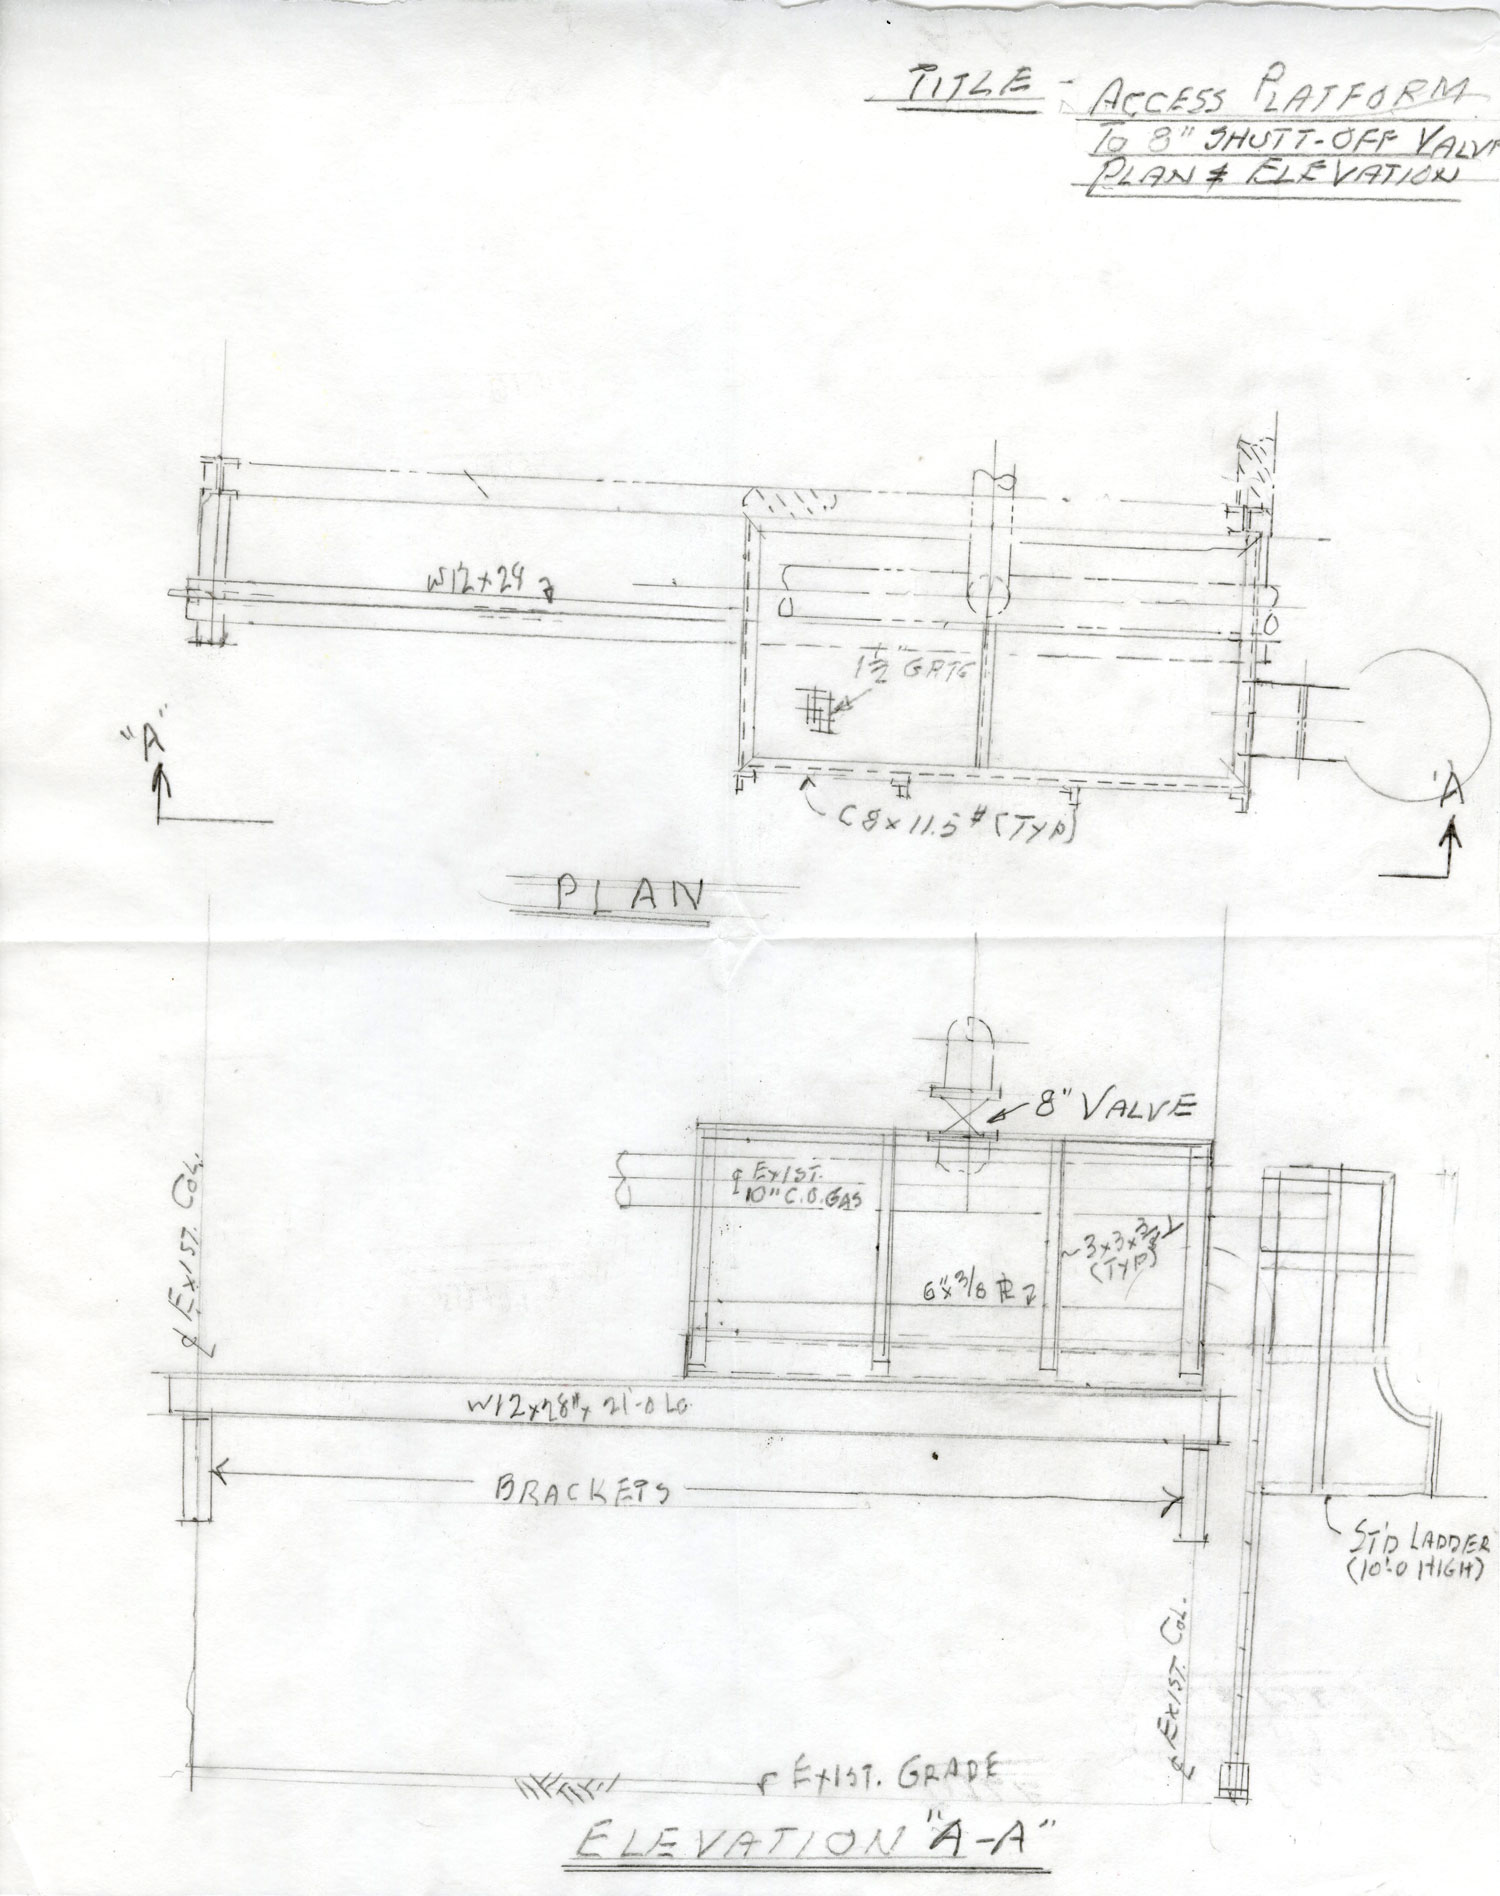 TITLE - ACCESS PLATFORM
TO 8" SHUTT-OFF VALVE
PLAN & ELEVATION
W12x24
1½" GRTG
"A"
"A
C8x11.5# (TYP)
PLAN
8" VALVE
℄ EXIST.
10" C.O. GAS
3x3x3/8
(TYP)
6"x3/8 PL
℄ EXIST. COL.
W12x28#x 21'-0 LG
BRACKETS
ST'D LADDER
(10'-0 HIGH)
℄ EXIST. COL.
EXIST. GRADE
ELEVATION "A-A"